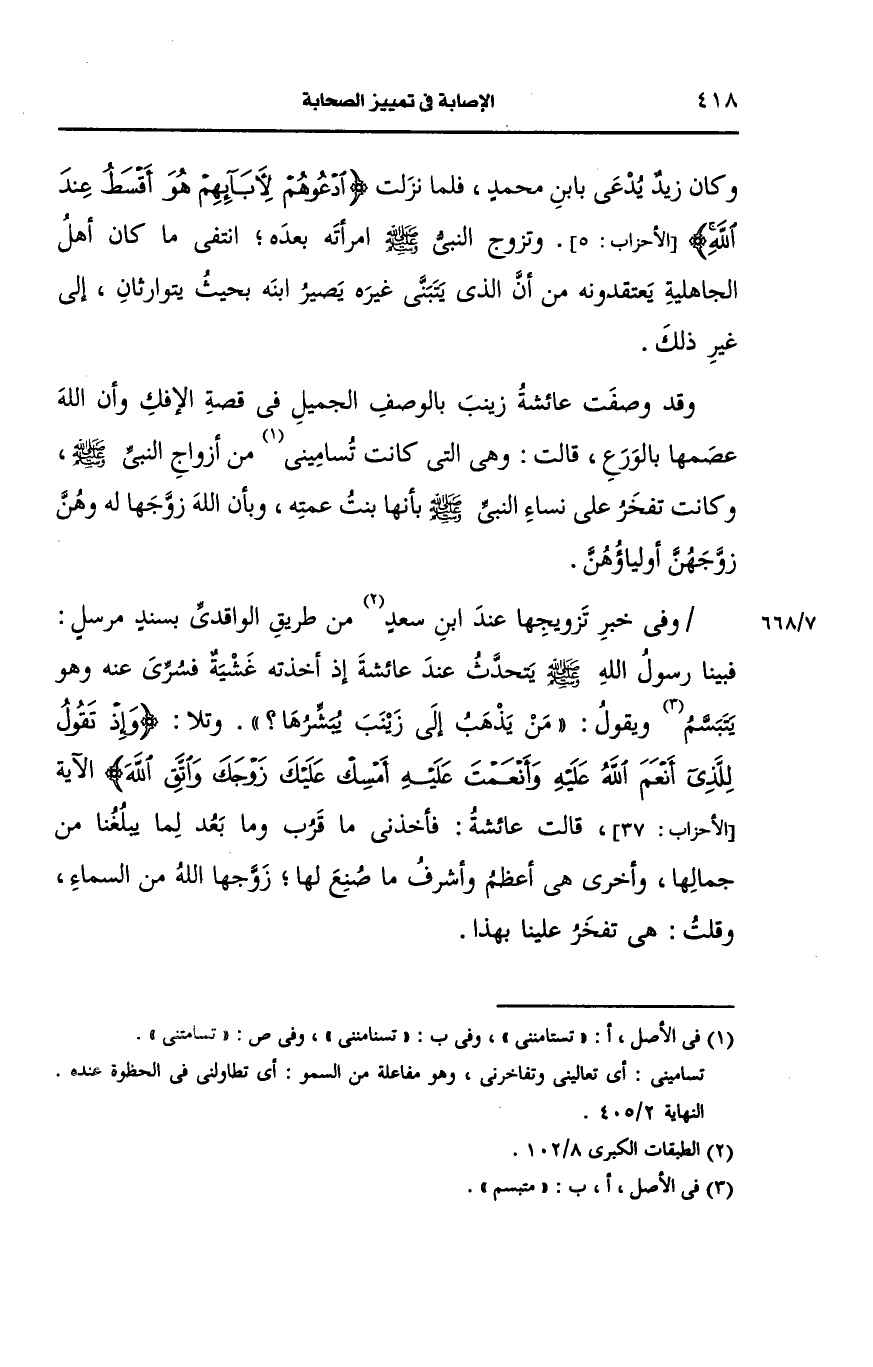 ٤١٨ الإصابة فى تمييز الصحابة
وكان زيدٌ يُدْعَى بابنِ محمدٍ ، فلما نزَلت ﴿ٱدْعُوهُمْ لِأَبَآئِهِمْ هُوَ أَقْسَطُ عِندَ
ٱللَّهِۚ﴾ [الأحزاب: ٥] . وتزوج النبىُّ ﷺ امرأتَه بعدَه؛ انتفى ما كان أهلُ
الجاهليةِ يَعتقدونه من أنَّ الذى يَتَبَنَّى غيرَه يَصيرُ ابنَه بحيثُ يتوارثانِ ، إلى
غيرِ ذلكَ .
وقد وصفَت عائشةُ زينبَ بالوصفِ الجميلِ فى قصةِ الإفكِ وأن اللهَ
عصَمها بالوَرَعِ ، قالت : وهى التى كانت تُسامِينى(١) من أزواجِ النبىِّ ﷺ ،
وكانت تفخَرُ على نساءِ النبىِّ ﷺ بأنها بنتُ عمتِه ، وبأن اللهَ زوَّجَها له وهُنَّ
زوَّجَهُنَّ أولياؤُهُنَّ .
٦٦٨/٧ / وفى خبرِ تَزويجِها عندَ ابنِ سعدٍ(٢) من طريقِ الواقدىِّ بسندٍ مرسلٍ :
فبينا رسولُ اللهِ ﷺ يَتحدَّثُ عندَ عائشةَ إذ أخذته غَشْيَةٌ فسُرِّىَ عنه وهو
يَتَبَسَّمُ(٣) ويقولُ : «مَنْ يَذْهَبُ إلَى زَيْنَبَ يُبَشِّرُهَا؟» . وتلا : ﴿وَإِذْ تَقُولُ
لِلَّذِىٓ أَنْعَمَ ٱللَّهُ عَلَيْهِ وَأَنْعَمْتَ عَلَيْهِ أَمْسِكْ عَلَيْكَ زَوْجَكَ وَٱتَّقِ ٱللَّهَ﴾ الآية
[الأحزاب: ٣٧] ، قالت عائشةُ : فأخذنى ما قَرُب وما بَعُد لِما يبلُغُنا من
جمالِها ، وأخرى هى أعظمُ وأشرفُ ما صُنِعَ لها ؛ زَوَّجها اللهُ من السماءِ ،
وقلتُ : هى تفخَرُ علينا بهذا .
(١) فى الأصل ، أ : « تستامننى » ، وفى ب : « تسنامننى » ، وفى ص : « تسامتنى » .
تسامينى : أى تعالينى وتفاخرنى ، وهو مفاعلة من السمو : أى تطاولنى فى الحظوة عنده .
النهاية ٤٠٥/٢ .
(٢) الطبقات الكبرى ١٠٢/٨ .
(٣) فى الأصل ، أ ، ب : « متبسم » .